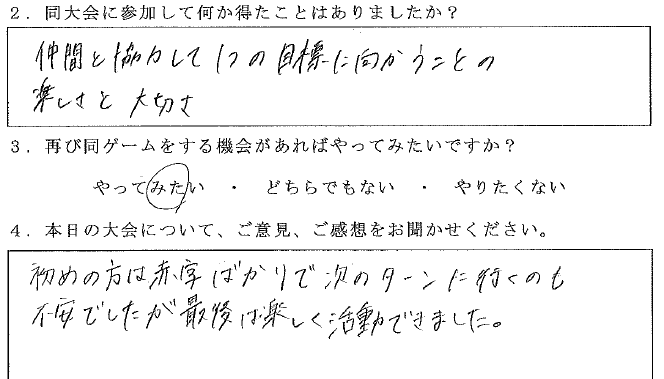 ２．同大会に参加して何か得たことはありましたか？
仲間と協力して1つの目標に向かうことの
楽しさと大切さ
３．再び同ゲームをする機会があればやってみたいですか？
やってみたい ・ どちらでもない ・ やりたくない
４．本日の大会について、ご意見、ご感想をお聞かせください。
初めの方は赤字ばかりで次のターンに行くのも
不安でしたが最後は楽しく活動できました。